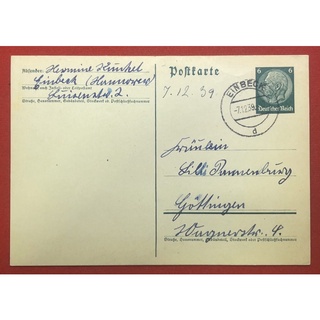 Absender: Hermine Künkel
Einbeck (Hannover)
Wohnort, auch Zustell- oder Leitpostamt
2.
Straße, Hausnummer, Gebäudeteil, Stockwerk od. Postschließfachnummer
Postkarte
7.12.39
6 6
Deutsches Reich
EINBECK
-7.12.39
d
Fräulein
Lilli Dannenburg
Göttingen
Wagnerstr.
Straße, Hausnummer, Gebäudeteil, Stockwerk oder Postschließfachnummer